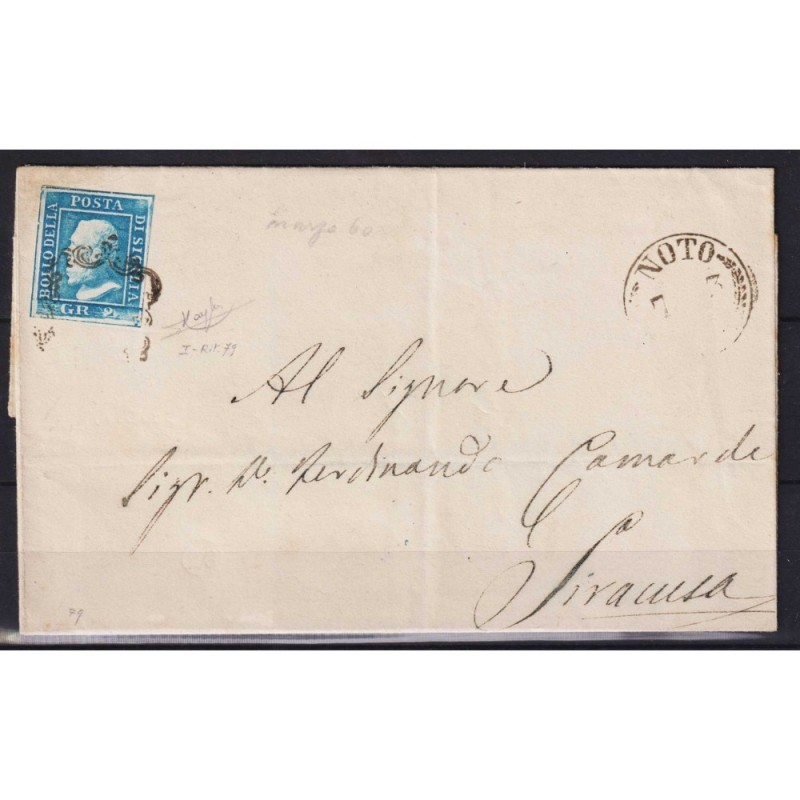 POSTA
BOLLO DELLA
DI SICILIA
GR 2
marzo 60
NOTO
I - Rit. 79
Al Signore
Sigr. Dn. Ferdinando Camarda
Siracusa